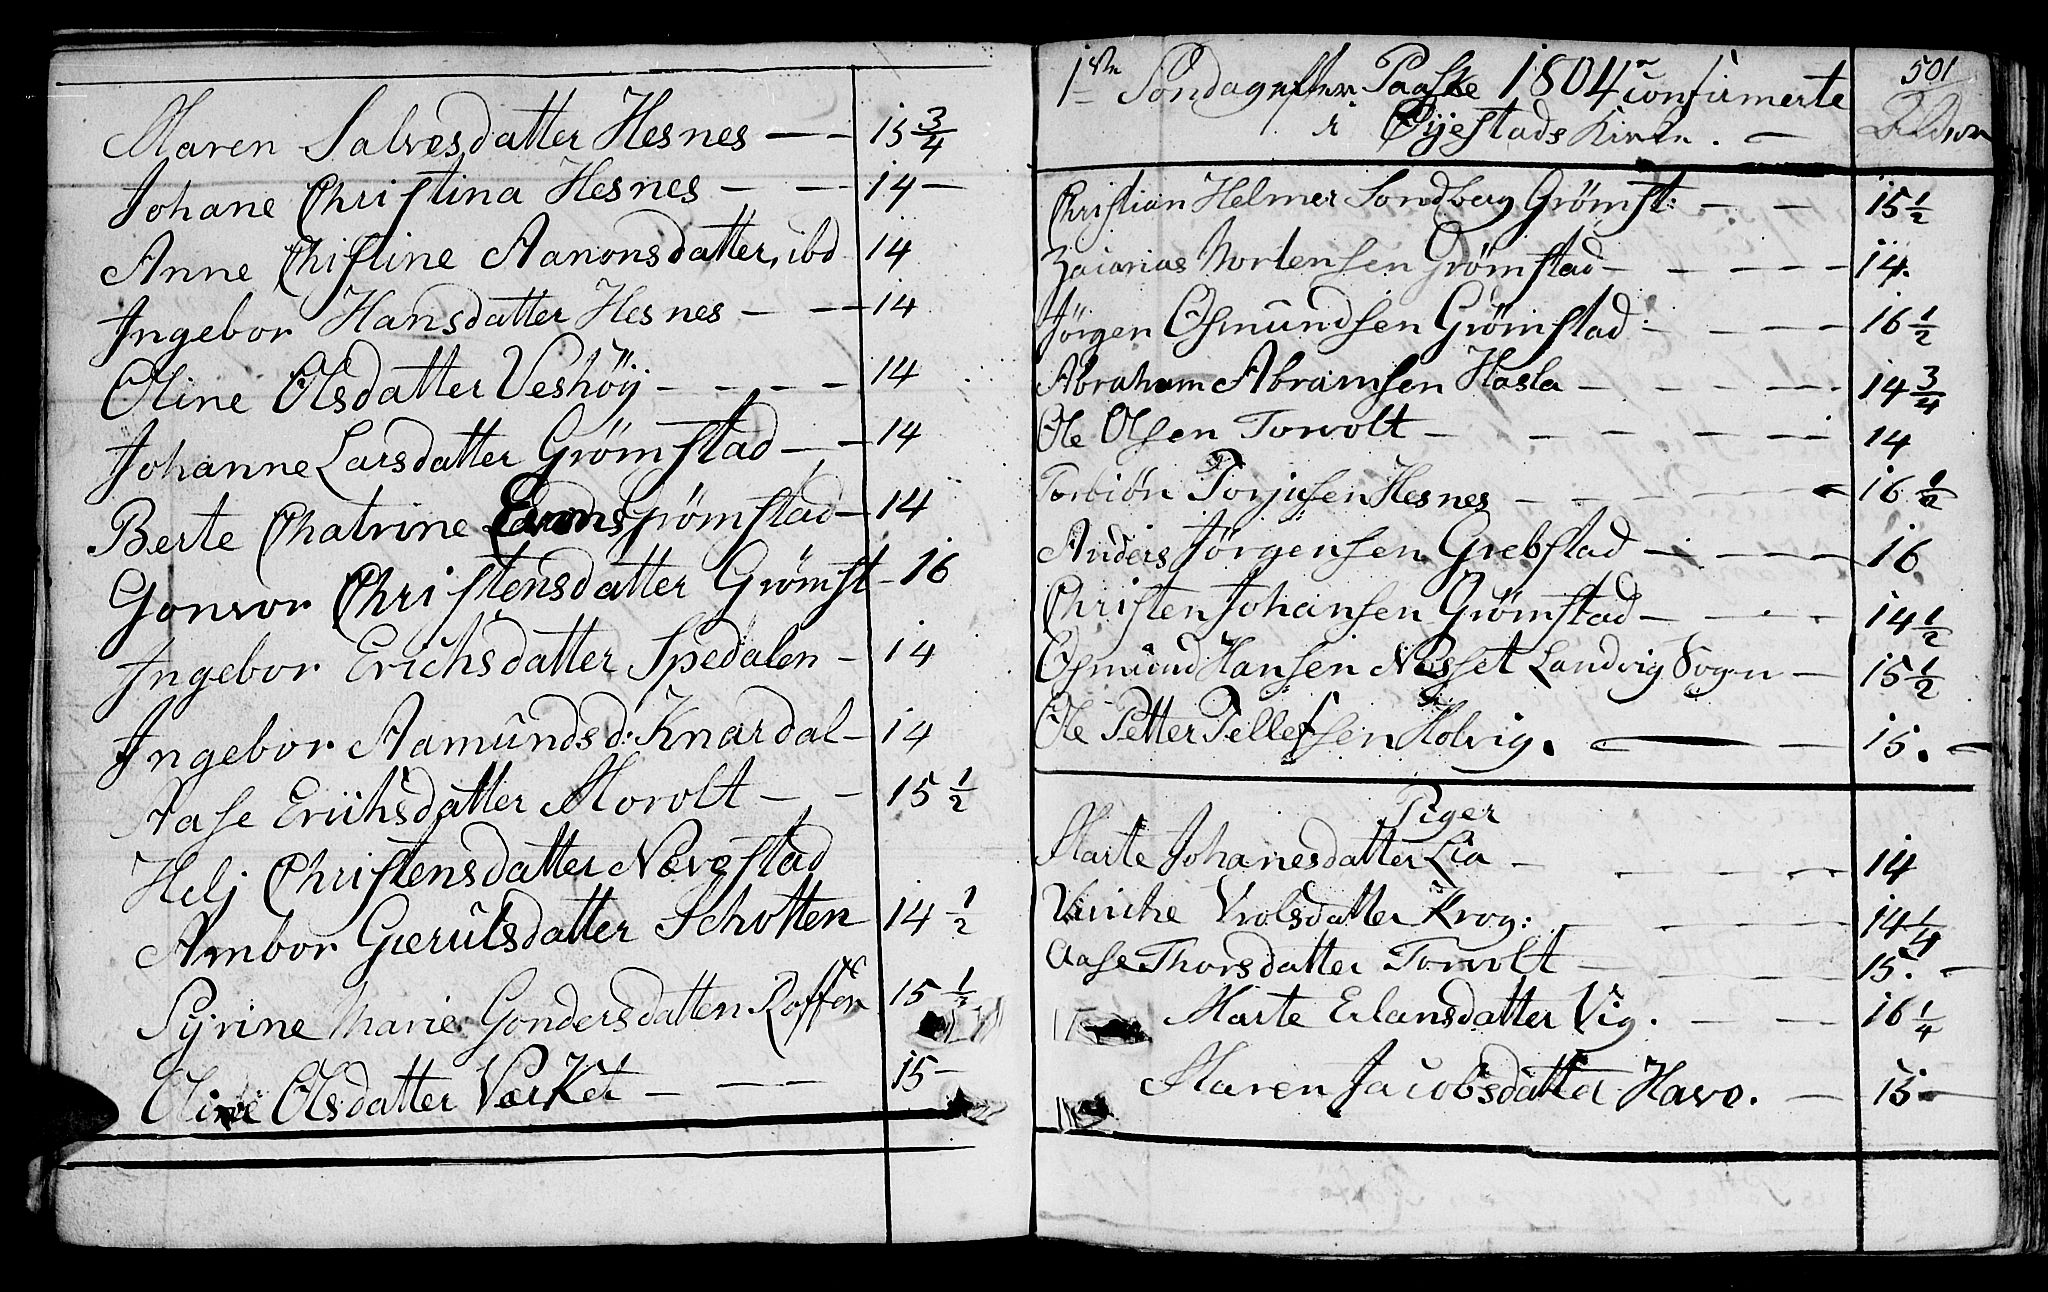 Maren Salvesdatter Hesnes — — 15 3/4
Johane Christina Hesnes — — 14 —
Anne Chistine Aanonsdatter, ibd 14
Ingebor Hansdatter Hesnes — — 14
Oline Olsdatter Veshöÿ — — — — 14
Johanne Larsdatter Grömstad — — 14
Berte Chatrine Grömstad — 14
Gonvor Christensdatter Grömst — 16
Ingebor Erichsdatter Spedalen — 14
Ingebor Aamundsd: Knardal — 14
Aase Erichsdatter Morolt — — 15 1/2
Helj Christensdatter Nævestad
Ambor Gierulsdatter Schotten 14 1/2
Syrine Marie Gondersdatter 15 1/2
Oline Olsdatter Værket — — — 15 —
501
1ste Söndag efter Paaske 1804 confirmerte
i Öyestads Kirke. — Alder
Christian Helmer Sondberg Grömst: — — 15 1/2
Zacarias Mortensen Grömstad — — — — — 14.
Jörgen Osmundsen Grömstad — — — — 16 1/2
Abraham Abramsen Hasla — — — — — 14 3/4
Ole Olsen Torvolt — — — — — — 14
Torbiön Torjusen Hesnes — — — — — 16 1/2
Anders Jörgensen Grebstad — — — — 16
Christen Johansen Grömstad — — — 14 1/2
Osmund Hansen Nesset Landvig Sogn — 15 1/2
Ole Petter Tellefsen Holvig. — — 15. —
Piger
Marte Johanesdatter Lia — — — — 14
Vrolsdatter Krog: — — — — 14 1/4
Aase Thorsdatter Torvolt — — — — 15. —
Marte Erlansdatter Vig. — — — 16 1/4
Maren Jacobsdatter Have. — 15 —